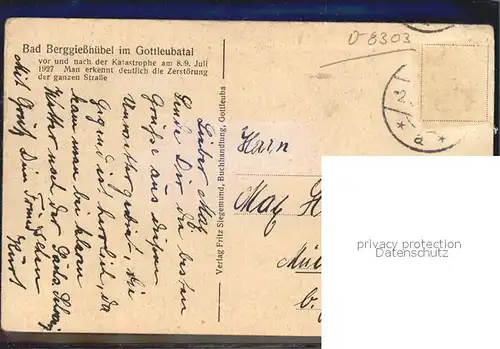 Bad Berggießhübel im Gottleubatal
vor und nach der Katastrophe am 8./9. Juli
1927 Man erkennt deutlich die Zerstörung
der ganzen Straße
D 8303
Lieber Max
Sende Dir die besten
Grüße aus diesem
Unwettergebiet, die
Gegend ist herrlich, da
kann man bei klarem
Wetter nach der
Mit Gruß Dein Freund
Kurt
Verlag Fritz Siegemund, Buchhandlung, Gottleuba
Herrn
Max
b.
privacy protection
watermark on
* a *